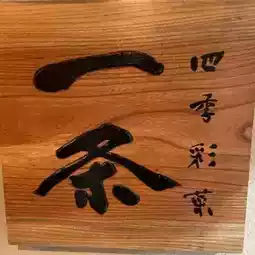 四季彩菜
一条